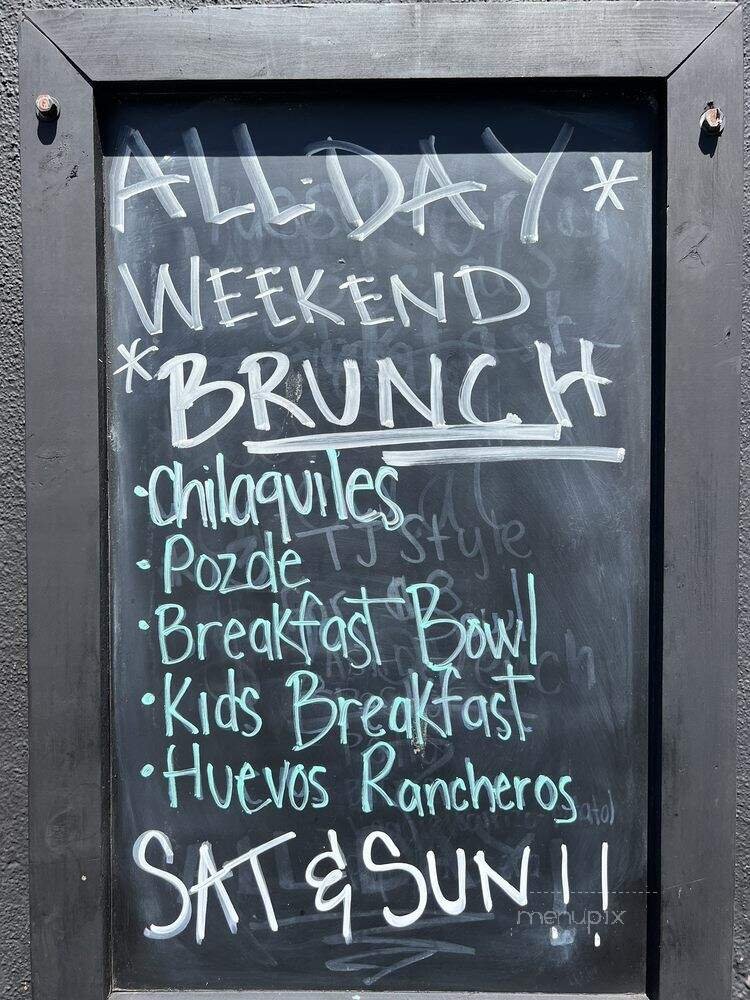 ALL-DAY *
WEEKEND
*BRUNCH
·Chilaquiles
·Pozole
·Breakfast Bowl
·Kids Breakfast
·Huevos Rancheros
SAT & SUN!!
menupix